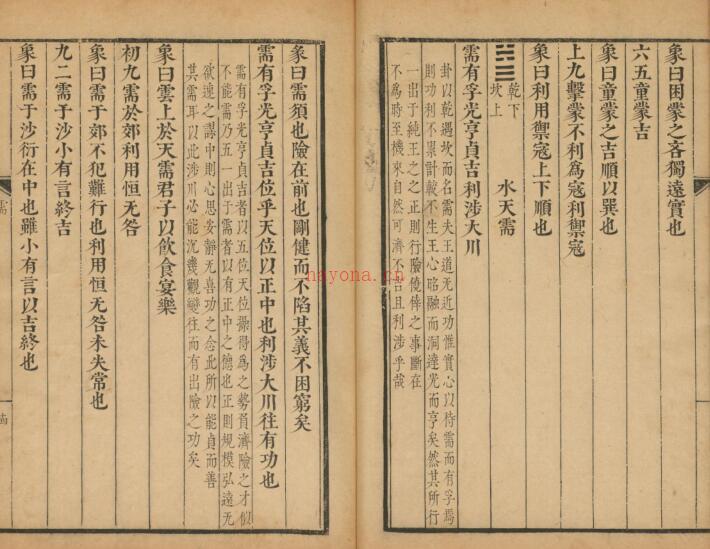 象曰困蒙之吝獨遠實也
六五童蒙吉
象曰童蒙之吉順以巽也
上九擊蒙不利爲寇利禦寇
象曰利用禦寇上下順也
䷄ 乾下
坎上
水天需
需有孚光亨貞吉利涉大川
卦以乾遇坎而名需夫王道无近功惟實心以待需而有孚焉
則功利不累計較不生王心昭融而洞達光而亨矣然其所行
一出于純王之之正則行險僥倖之事斷在
不爲時至機來自然可濟不占且利涉乎哉
彖曰需須也險在前也剛健而不陷其義不困窮矣
需有孚光亨貞吉位乎天位以正中也利涉大川往有功也
需有孚光亨貞吉者以五位天位操得爲之勢負濟險之才似
不能需乃五一出于需者以有正中之德也正則規模弘遠无
欲速之謀中則心思安靜无喜功之念此所以能貞而善
其需耳以此涉川必能沉幾觀變往而有出險之功矣
象曰雲上於天需君子以飲食宴樂
初九需於郊利用恒无咎
象曰需于郊不犯難行也利用恒无咎未失常也
九二需于沙小有言終吉
象曰需于沙衍在中也雖小有言以吉終也
需
nayona.cn